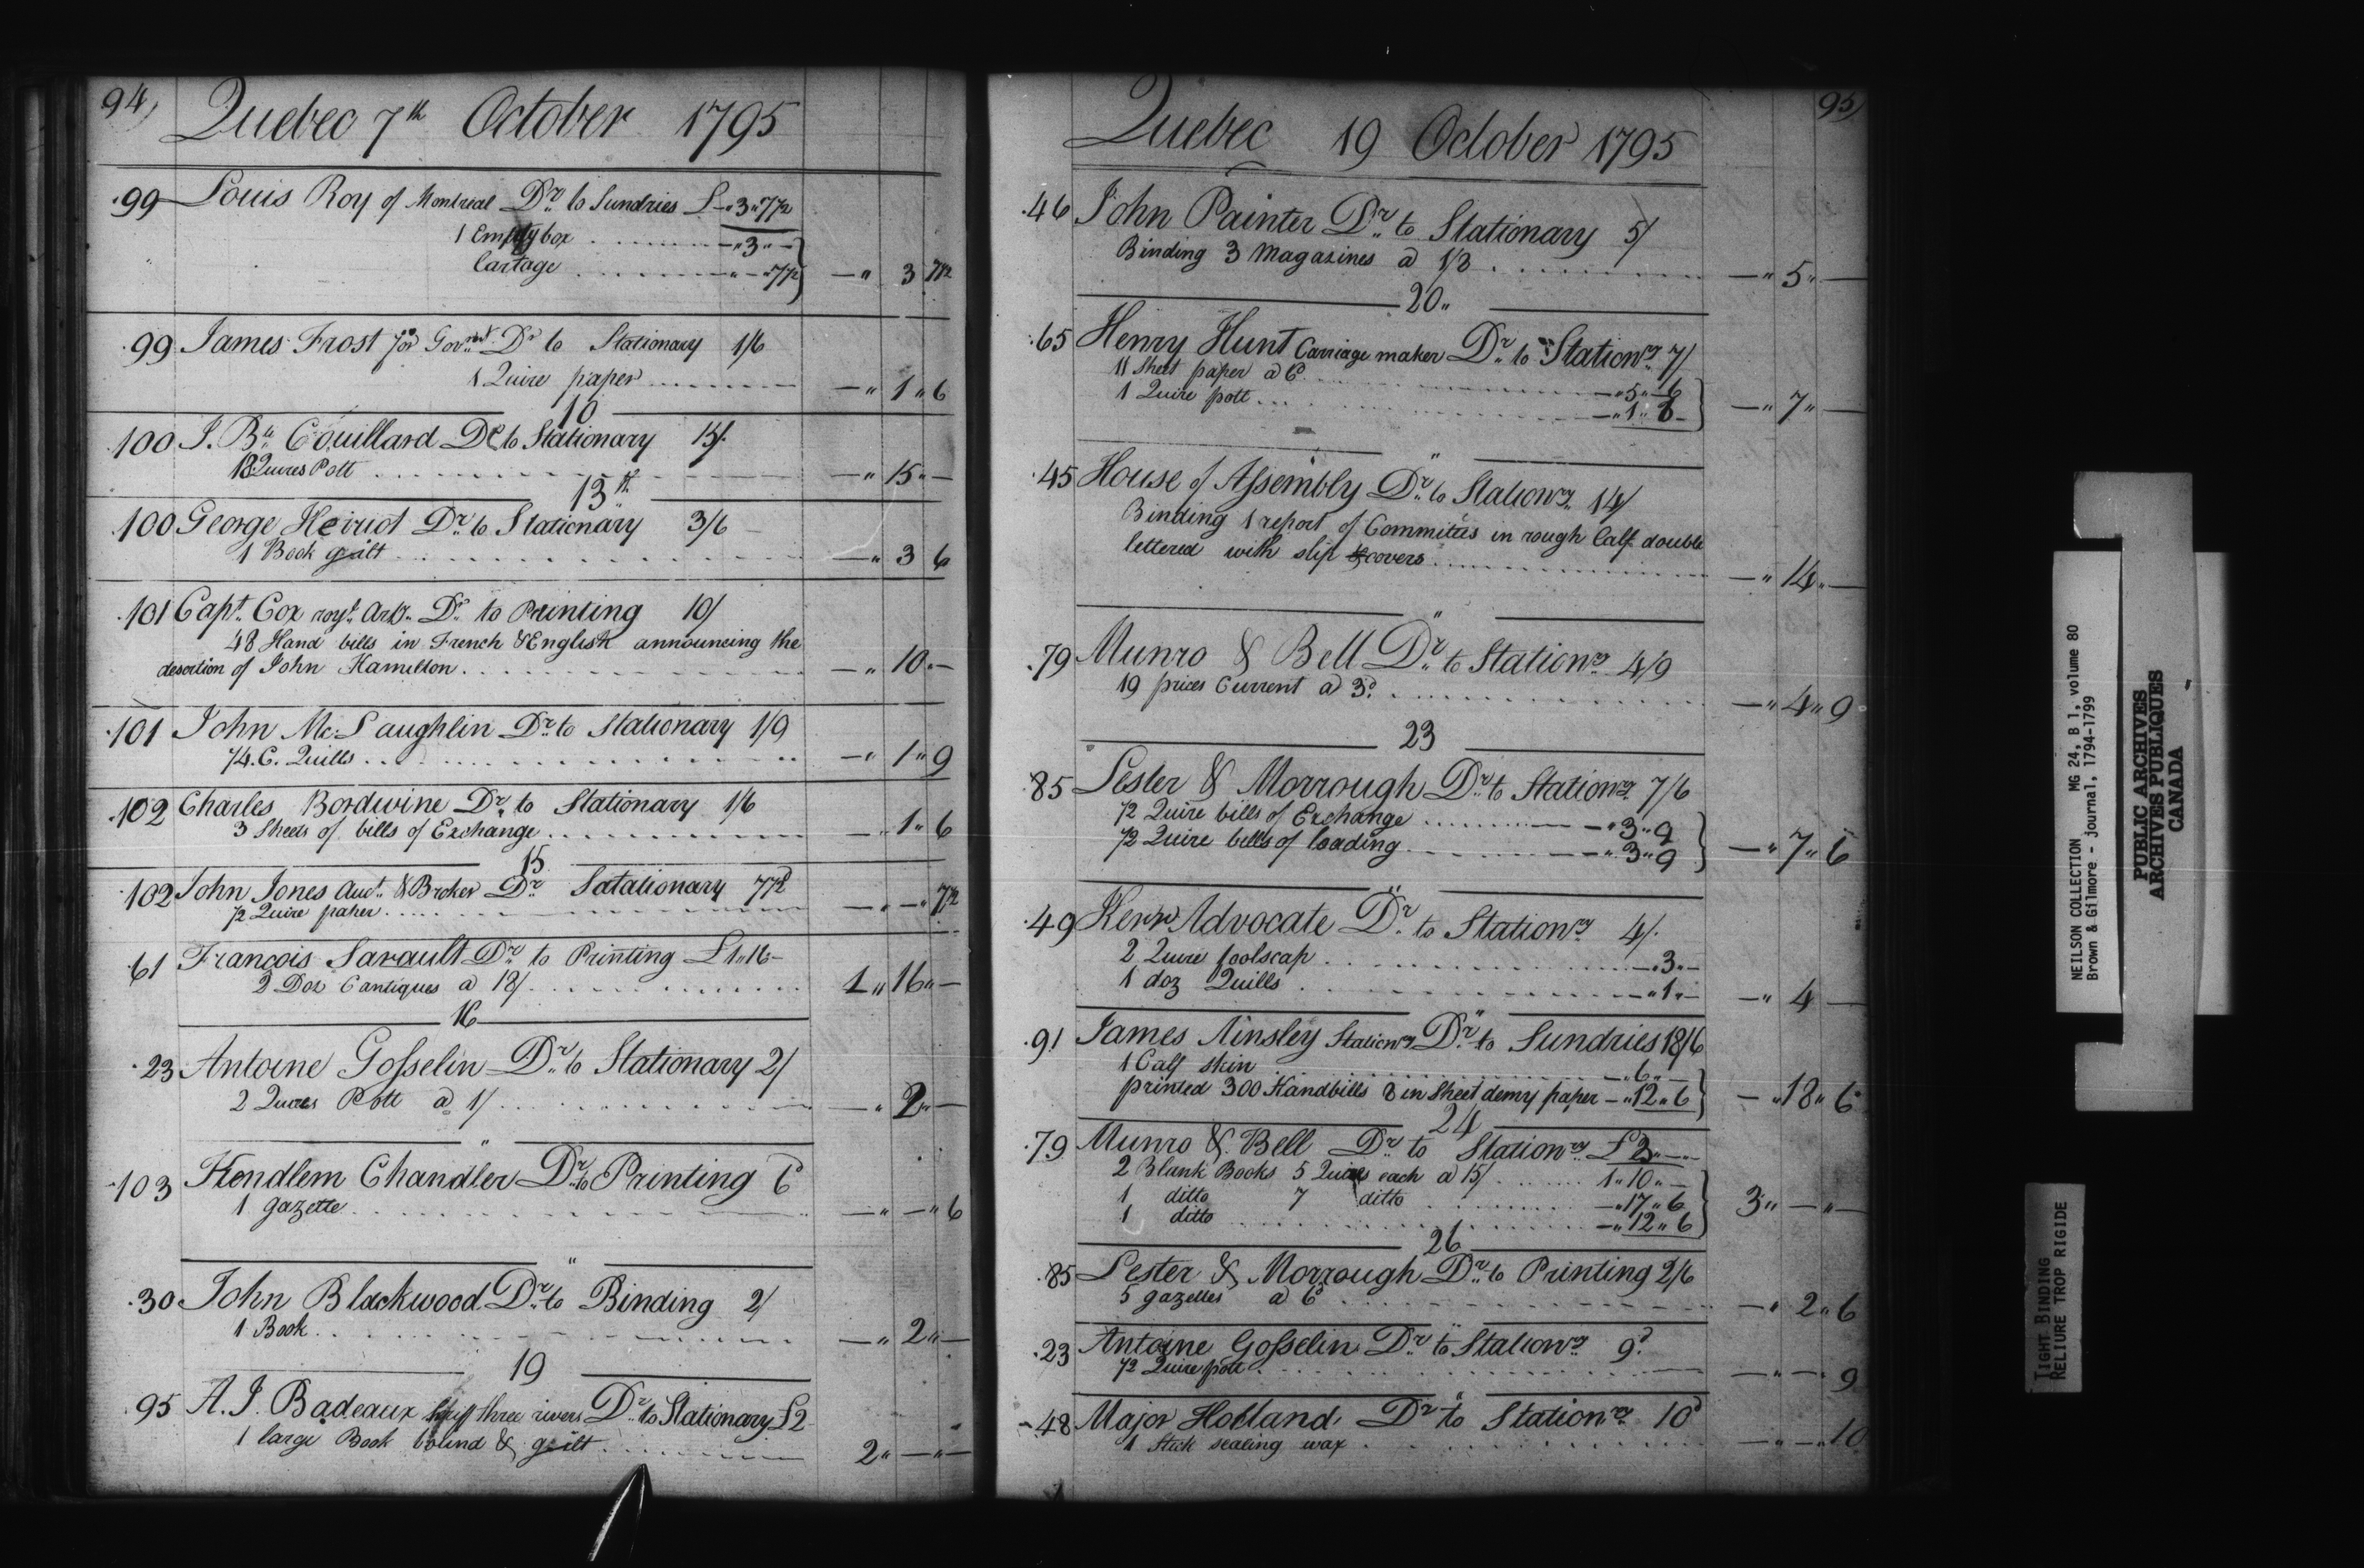 94)
Quebec 7th October 1795
99 Louis Roy of Montreal Dr to Sundries £-"3"7½
1 Empty box - "3" -
Cartage - " - "7½ } - " 3 7½
99 James Frost for Govmt Dr to Stationary 1/6
1 Quire paper - " 1 " 6
10
100 J. Bte Couillard Dr to Stationary 15/.
18 Quires Pott - " 15 " -
13th
100 George Heriot Dr to Stationary 3/6
1 Book guilt - " 3 6
101 Capt. Cox royl Arty Dr to Printing 10/
48 Hand bills in French & English announcing the
desertion of John Hamilton - " 10 " -
101 John Mc:Laughlin Dr to Stationary 1/9
¼. C. Quills - " 1 " 9
102 Charles Bordwine Dr to Stationary 1/6
3 Sheets of bills of Exchange - " 1 " 6
15
102 John Jones Auct. & Broker Dr Satationary 7½d
½ Quire paper - " - " 7½
61 François Sarault Dr to Printing £1"16"-
2 Doz Cantiques a 18/ 1 " 16 " -
16
23 Antoine Gosselin Dr to Stationary 2/
2 Quires Pott a 1/ - " 2 " -
"
103 Kendlem Chandler Dr to Printing 6d
1 gazette - " - " 6
"
30 John Blackwood Dr to Binding 2/
1 Book - " 2 " -
19
95 A. I. Badeaux three rivers Dr to Stationary £2
1 large Book bound & guilt 2 " - " -
95)
Quebec 19 October 1795
46 John Painter Dr to Stationary 5/
Binding 3 Magazines a 1/8 - " 5 " -
20"
65 Henry Hunt Carriage maker Dr to Stationry 7/
11 Sheet paper a 6d - " 5 " 6
1 Quire pott - " 1 " 6 } - " 7 " -
"
45 House of Assembly Dr to Stationry 14/
Binding 1 report of Committees in rough Calf double
lettered with slip covers - " 14 " -
"
79 Munro & Bell Dr to Stationry 4/9
19 prices Current a 3d - " 4 " 9
23
85 Lester & Morrough Dr to Stationry 7/6
½ Quire bills of Exchange - " 3 " 9
½ Quire bills of loading - " 3 " 9 } - " 7 " 6
"
49 Kerr Advocate Dr to Stationry 4/.
2 Quire foolscap - " 3 " -
1 doz Quills - " 1 " - } - " 4 -
"
91 James Ainsley Stationry Dr to Sundries 18/6
1 Calf skin - " 6 " -
printed 300 Handbills 8 in Sheet demy paper - " 12 " 6 } - " 18 " 6
24
79 Munro & Bell Dr to Stationry £3 " - " -
2 Blank Books 5 Quires each a 15/ 1 " 10 " -
1 ditto 7 ditto - " 17 " 6
1 ditto - " 12 " 6 } 3 " - " -
26
85 Lester & Morrough Dr to Printing 2/6
5 gazettes a 6d - " 2 " 6
"
23 Antoine Gosselin Dr to Stationry 9d
½ Quire pott - " - " 9
"
48 Major Holland Dr to Stationry 10d
1 Stick sealing wax - " - " 10
NEILSON COLLECTION MG 24, B 1, volume 80
Brown & Gilmore - journal, 1794-1799
PUBLIC ARCHIVES
ARCHIVES PUBLIQUES
CANADA
TIGHT BINDING
RELIURE TROP RIGIDE